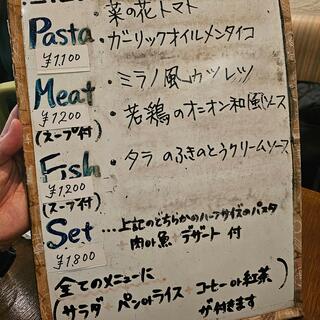 ・菜の花トマト
Pasta ・ガーリックオイルメンタイコ
¥1,100
Meat ・ミラノ風カツレツ
¥1,200
(スープ付) ・若鶏のオニオン和風ソース
Fish ・タラのふきのとうクリームソース
¥1,200
(スープ付)
Set …上記のどちらかのハーフサイズのパスタ
+肉or魚+デザート付
¥1,800
全てのメニューに
(サラダ+パンorライス+コーヒーor紅茶
が付きます)